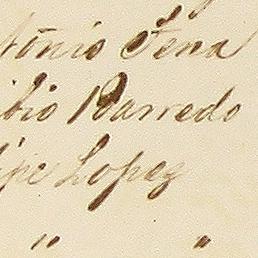 tonio Tena
bio Barredo
ipe Lopez
" "